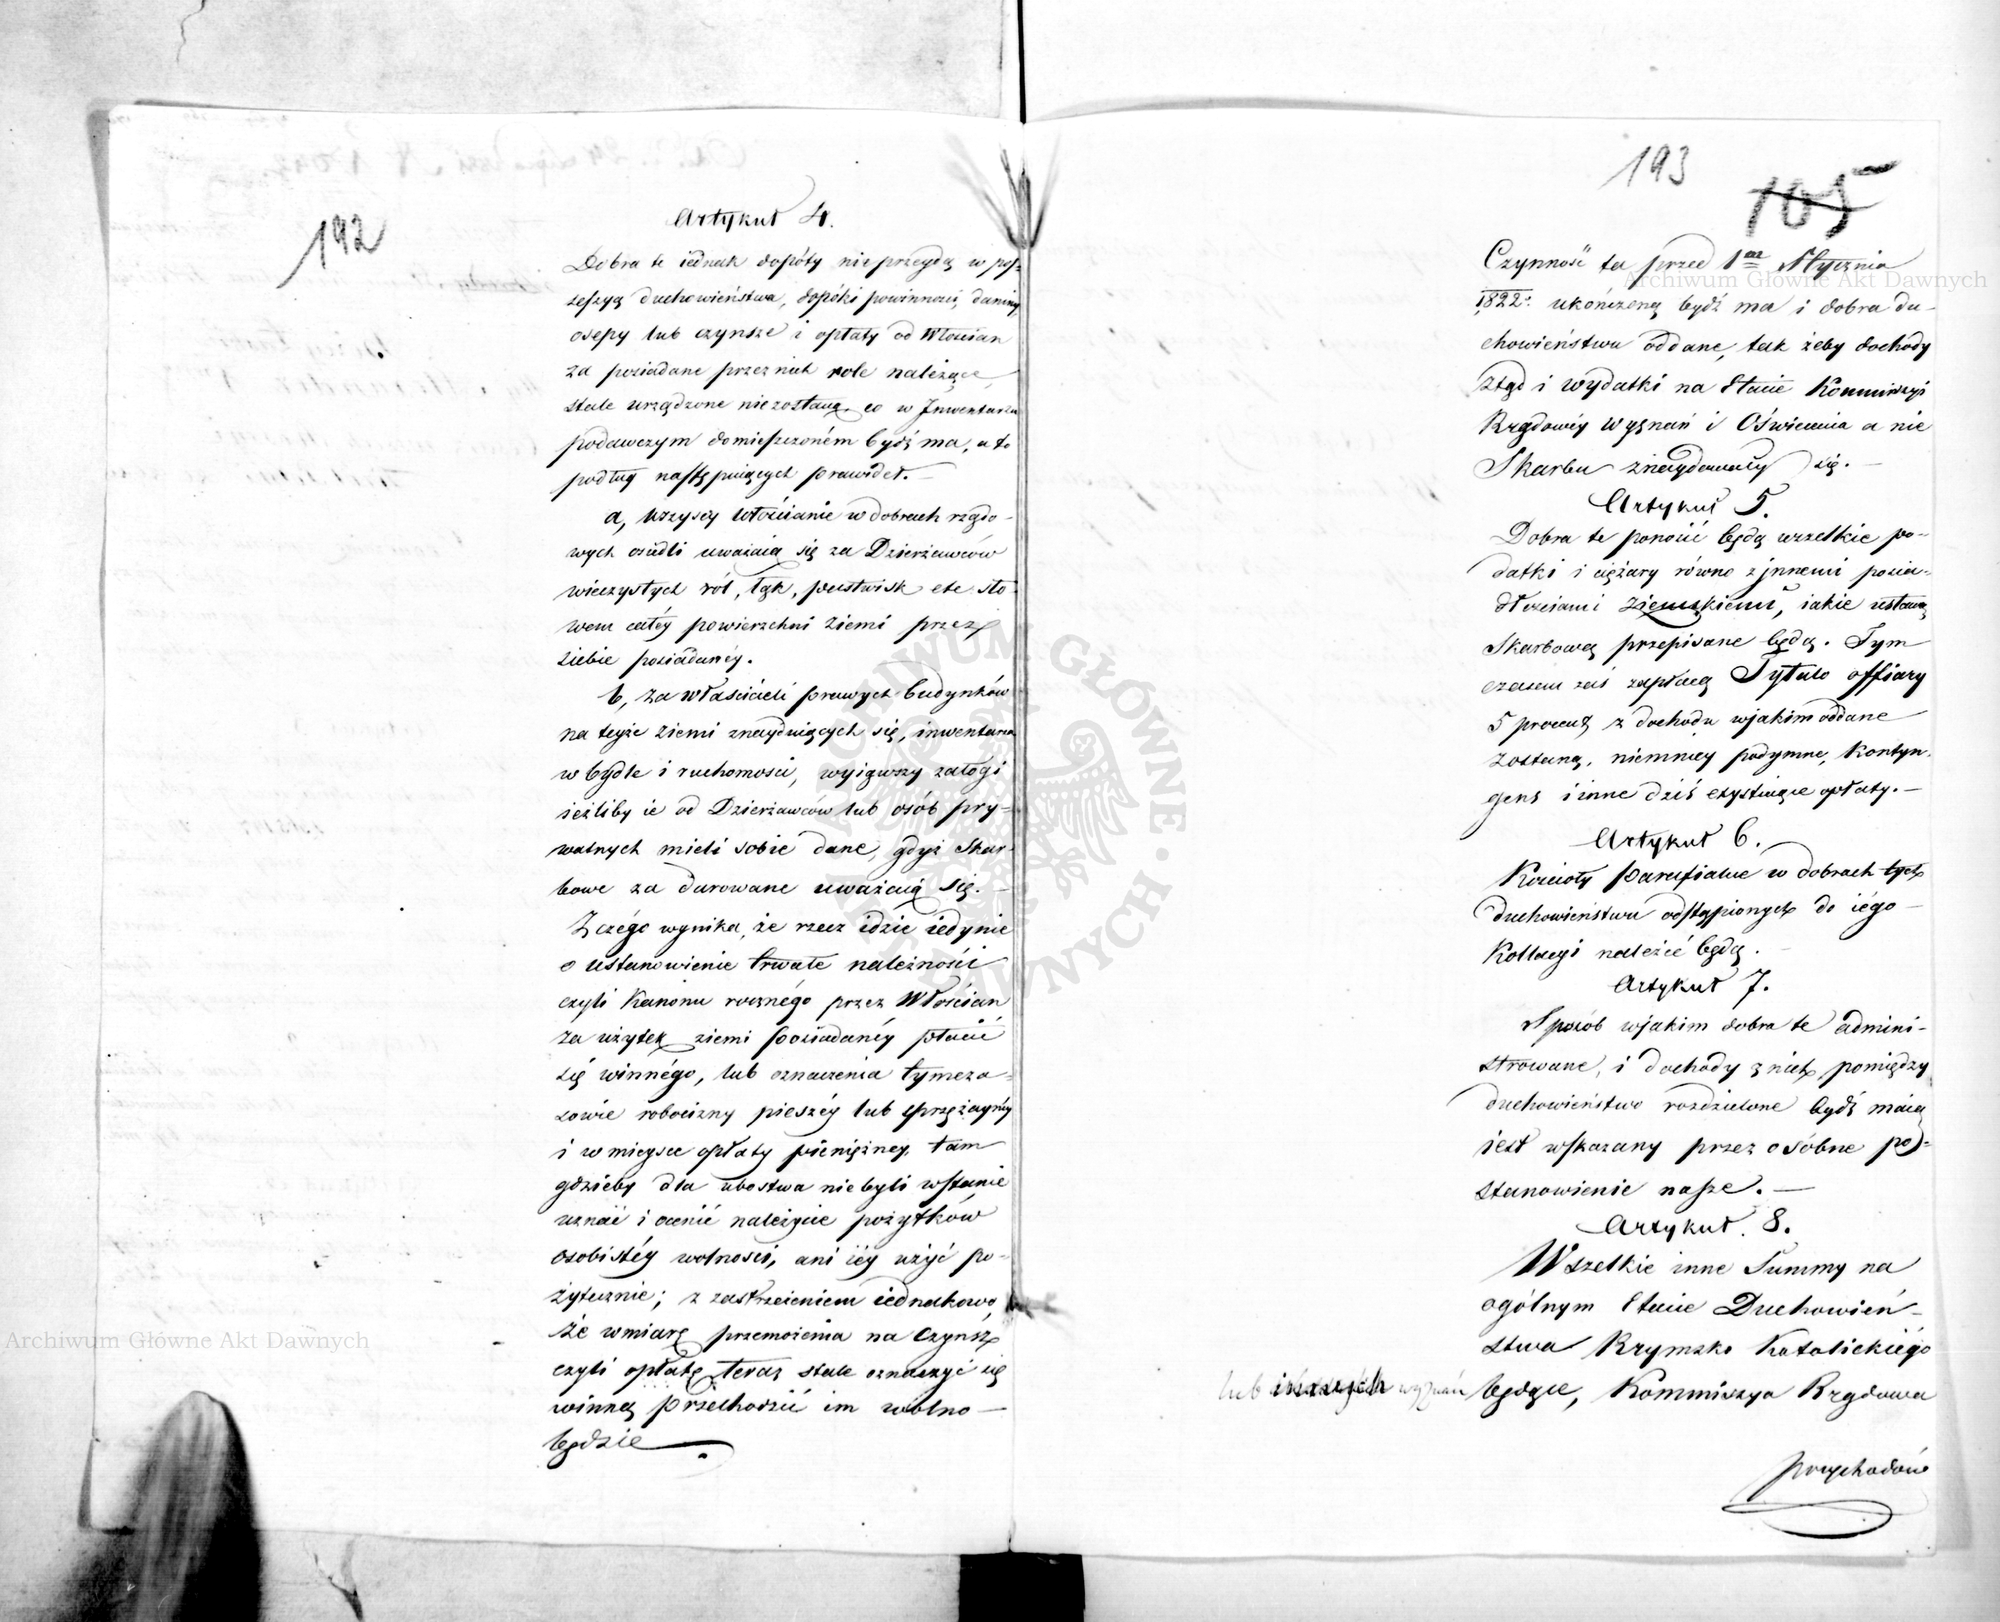 192
Artykuł 4.
Dobra te iednak dopóty nieprzeydą w pos-
sessyą duchowieństwa, dopóki powinności, daniny
osepy lub czynsze i opłaty od Włościan
za posiadane przez nich role należące,
stale urządzone niezostaną, co w Inwentarzu
podawczym domieszczoném bydź ma, a to
podług następuiących prawideł. —
a, Wszyscy Włościanie w dobrach rządo-
wych osiedli uważaią się za Dzierżawców
wieczystych ról, łąk, pastwisk etc sło-
wem całéy powierzchni ziemi przez
siebie posiadanéy.
b, za właścicieli prawych budynków
na teyże ziemi znayduiących się, inwentarza
w bydle i ruchomości, wyiąwszy załogi
ieżliby ie od Dzierżawców lub osób pry-
watnych mieli sobie dane, gdyż Skar-
bowe za darowane uważaią się. —
Z czego wynika, że rzecz idzie iedynie
o ustanowienie trwałe należności
czyli Kanonu rocznégo przez Włościan
za użytek ziemi posiadanéy płacić
się winnégo, lub oznaczenia tymcza-
sowie robocizny pieszéy lub sprzężaynéy
i w mieysce opłaty pieniężney, tam
gdzieby dla ubostwa nie byli wstanie
uznać i ocenić należycie pożytków
osobistéy wolności, ani iéy użyć po-
żytecznie; z zastrzeżeniem iednakowo,
że w miarę przemożenia na Czynsz
czyli opłatę teraz stale oznaczyć się
winną przechodzić im wolno —
będzie
193
105
Czynność ta przed 1ᵐ Stycznia
1822. ukończoną bydź ma i dobra du-
chowieństwu oddane, tak żeby dochody
ztąd i wydatki na Etacie Kommissyi
Rządowéy Wyznań i Oświecenia a nie
Skarbu znaydowały się. —
Artykuł 5.
Dobra te ponosić będą wszelkie po-
datki i ciężary równo z innemi posia-
dłościami ziemskiemi, iakie ustawą
Skarbową przepisane będą. Tym
czasem zaś zapłacą Tytulo offiary
5 procent z dochodu w jakim oddane
zostaną, niemniey podymne, kontyn-
gens i inne dziś exystuiące opłaty. —
Artykuł 6.
Kościoły parafialne w dobrach tych
duchowieństwu odstąpionych do iégo —
Kollacyi należéć będą. —
Artykuł 7.
Sposób w jakim dobra te admini-
strowane, i dochody z nich pomiędzy
duchowieństwo rozdzielone bydź maią
iest wskazany przez osóbne po-
stanowienie nasze. —
Artykuł 8.
Wszelkie inne Summy na
ogólnym Etacie Duchowień-
stwa Rzymsko Katolickiégo
lub innych wyznań będące, Kommissya Rządowa
Przychodów
Archiwum Główne Akt Dawnych
Archiwum Główne Akt Dawnych
ARCHIWUM GŁÓWNE AKT DAWNYCH